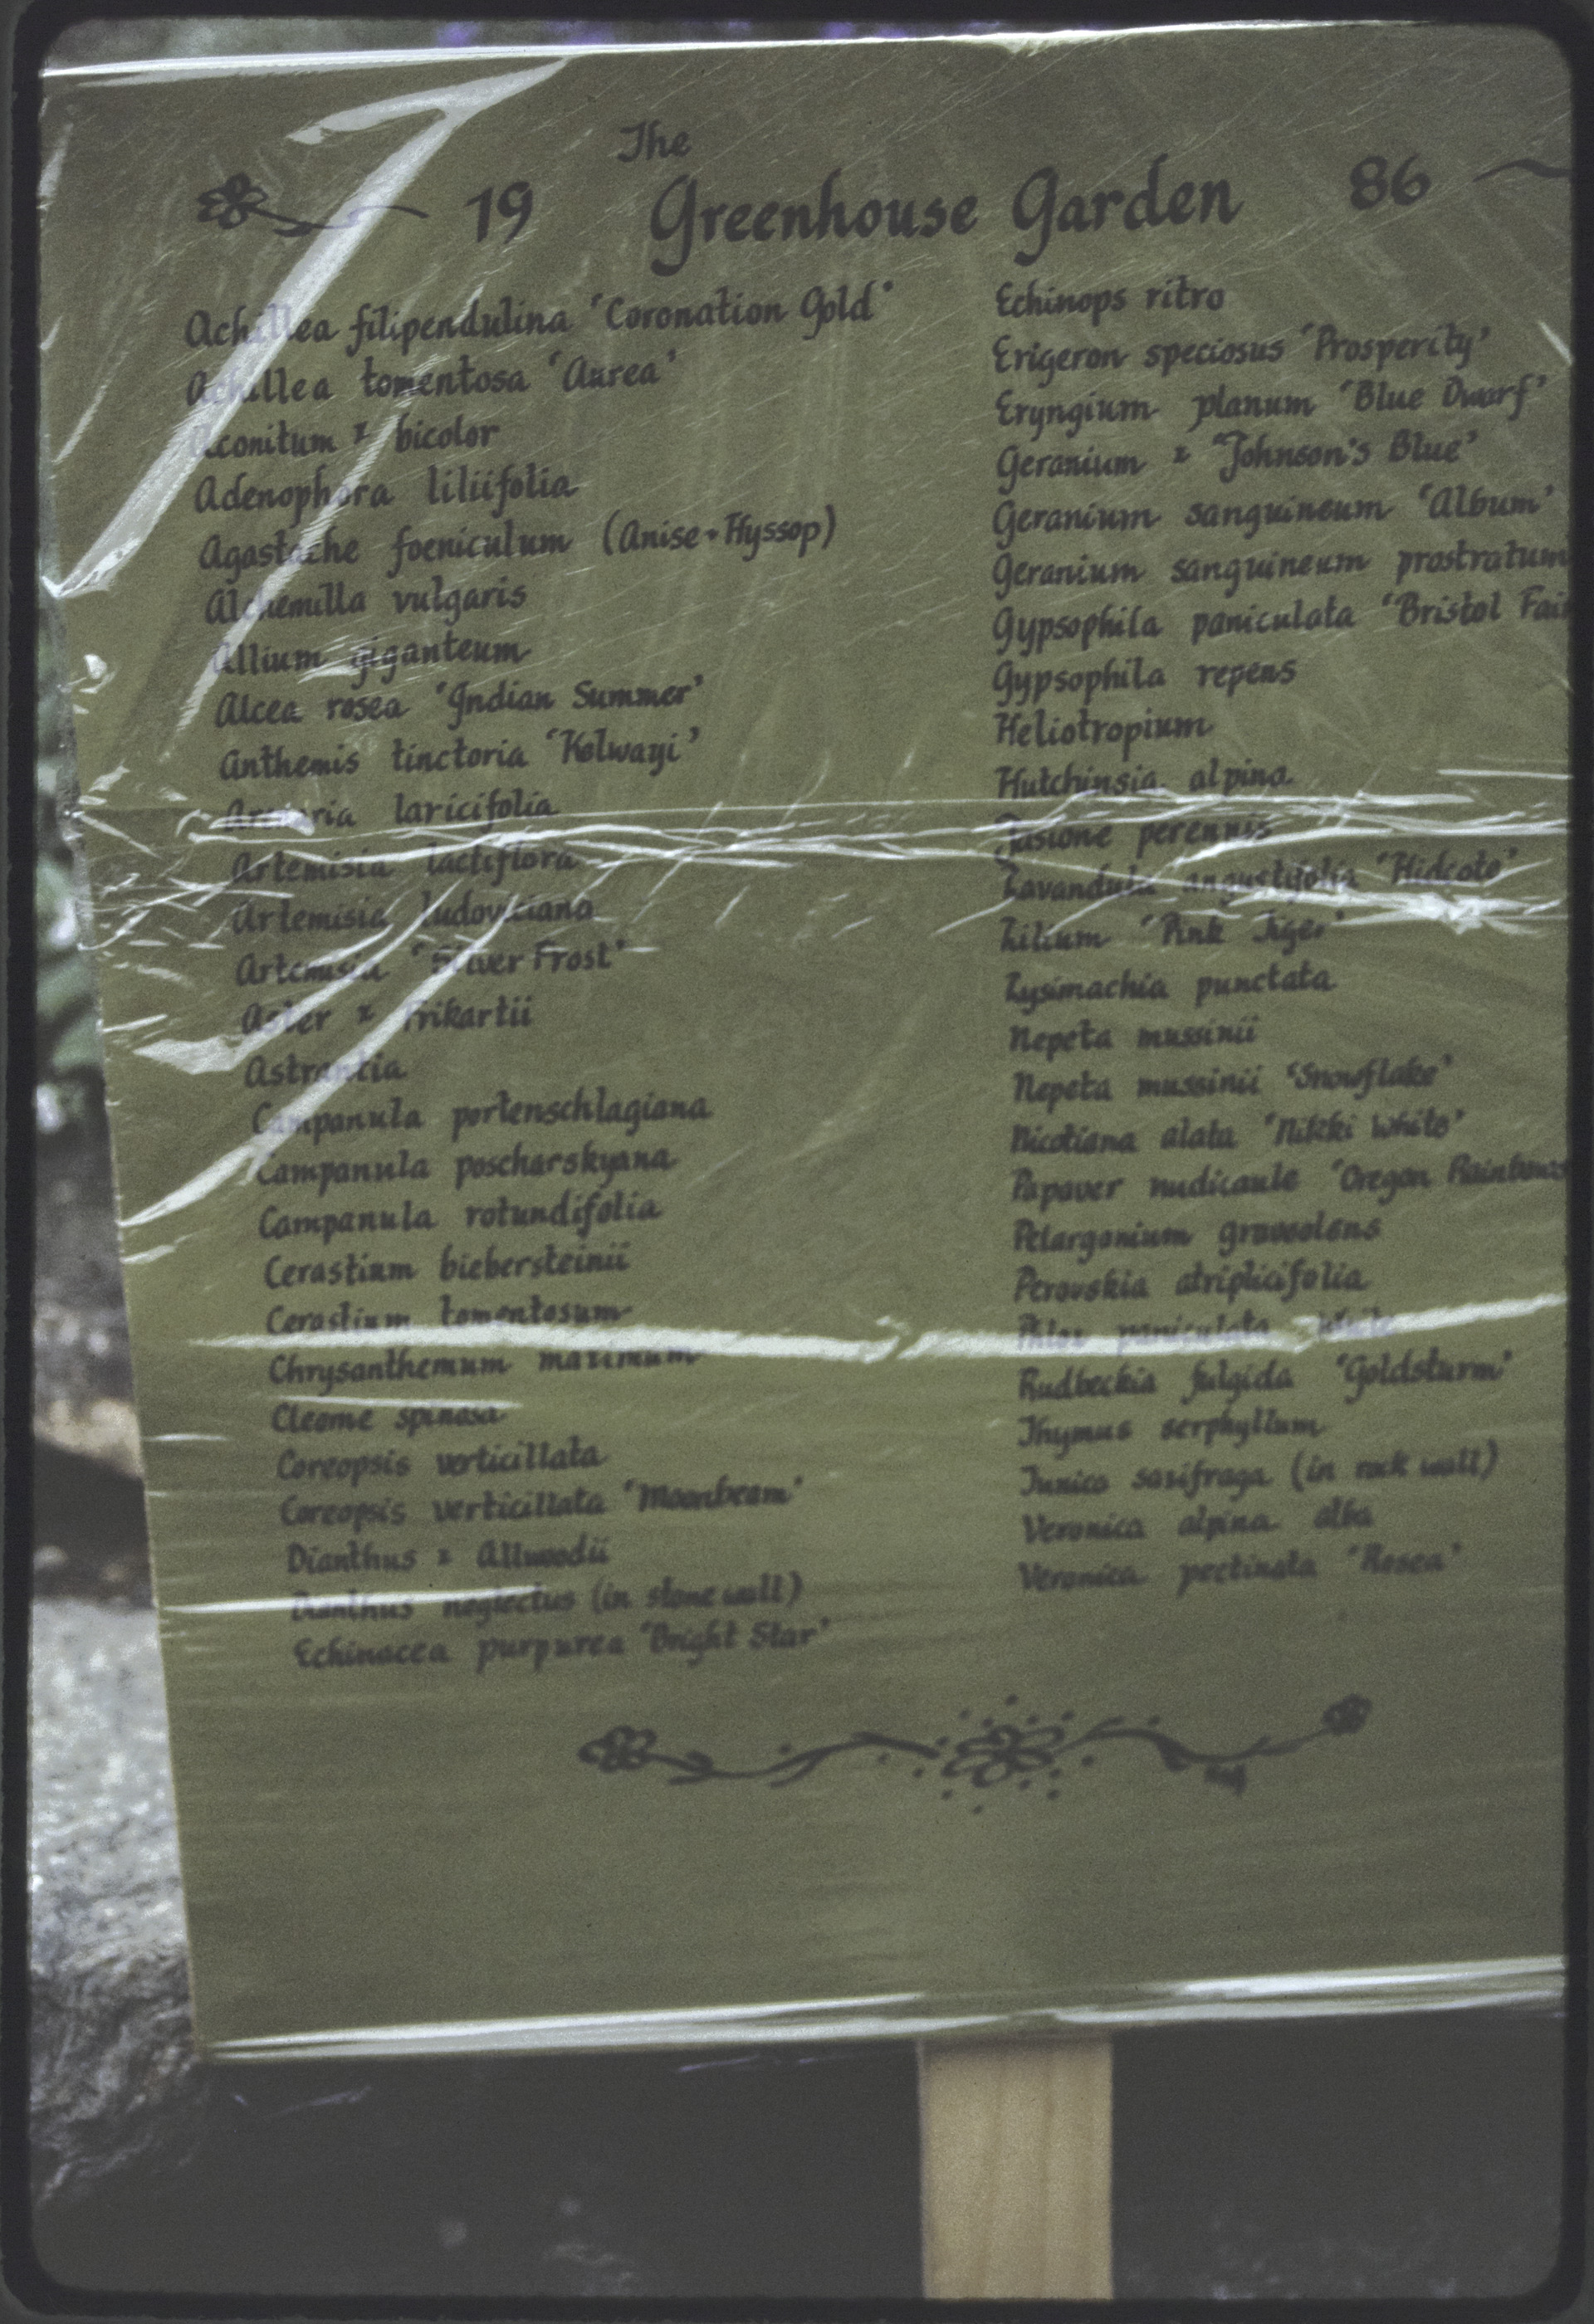 The
19 Greenhouse Garden 86
Achillea filipendulina 'Coronation Gold'
Achillea tomentosa 'Aurea'
Aconitum x bicolor
Adenophora liliifolia
Agastache foeniculum (Anise-Hyssop)
Alchemilla vulgaris
Allium giganteum
Alcea rosea 'Indian Summer'
Anthemis tinctoria 'Kelwayi'
laricifolia
Artemisia lactiflora
Artemisia ludoviciana
Artemisia 'Silver Frost'
Aster x Frikartii
Astrantia
Campanula portenschlagiana
Campanula poscharskyana
Campanula rotundifolia
Cerastium biebersteinii
Cerastium tomentosum
Chrysanthemum maximum
Cleome spinosa
Coreopsis verticillata
Coreopsis verticillata 'Moonbeam'
Dianthus x Allwoodii
Dianthus neglectus (in stone wall)
Echinacea purpurea 'Bright Star'
Echinops ritro
Erigeron speciosus 'Prosperity'
Eryngium planum 'Blue Dwarf'
Geranium x 'Johnson's Blue'
Geranium sanguineum 'Album'
Geranium sanguineum prostratum
Gypsophila paniculata 'Bristol Fai
Gypsophila repens
Heliotropium
Hutchinsia alpina
Jasione perennis
Lavandula angustifolia 'Hidcote'
Lilium 'Pink Tiger'
Lysimachia punctata
Nepeta mussinii
Nepeta mussinii 'Snowflake'
Nicotiana alata 'Nikki White'
Papaver nudicaule 'Oregon Rainbows
Pelargonium graveolens
Perovskia atriplicifolia
Phlox paniculata White
Rudbeckia fulgida 'Goldsturm'
Thymus serphyllum
Tunica saxifraga (in rock wall)
Veronica alpina alba
Veronica pectinata 'Rosea'